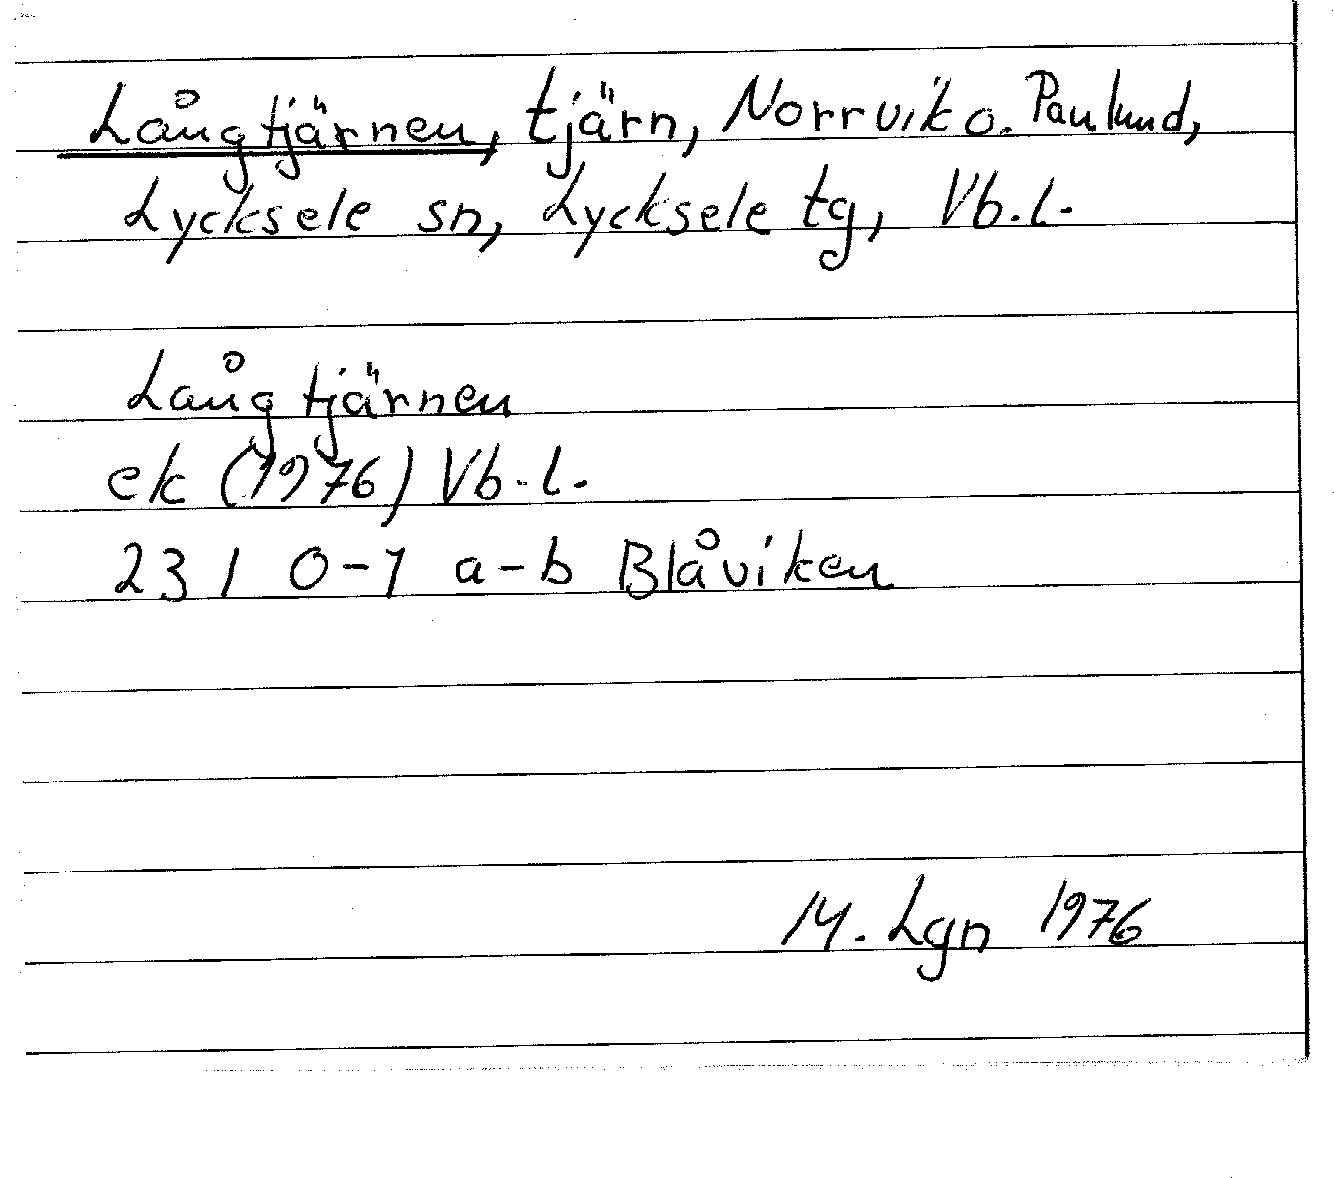 Långtjärnen, tjärn, Norrvik o. Paulund,
Lycksele sn, Lycksele tg, Vb.l.
Långtjärnen
ek (1976) Vb.l.
23 I 0-1 a-b Blåviken
M. Lgn 1976